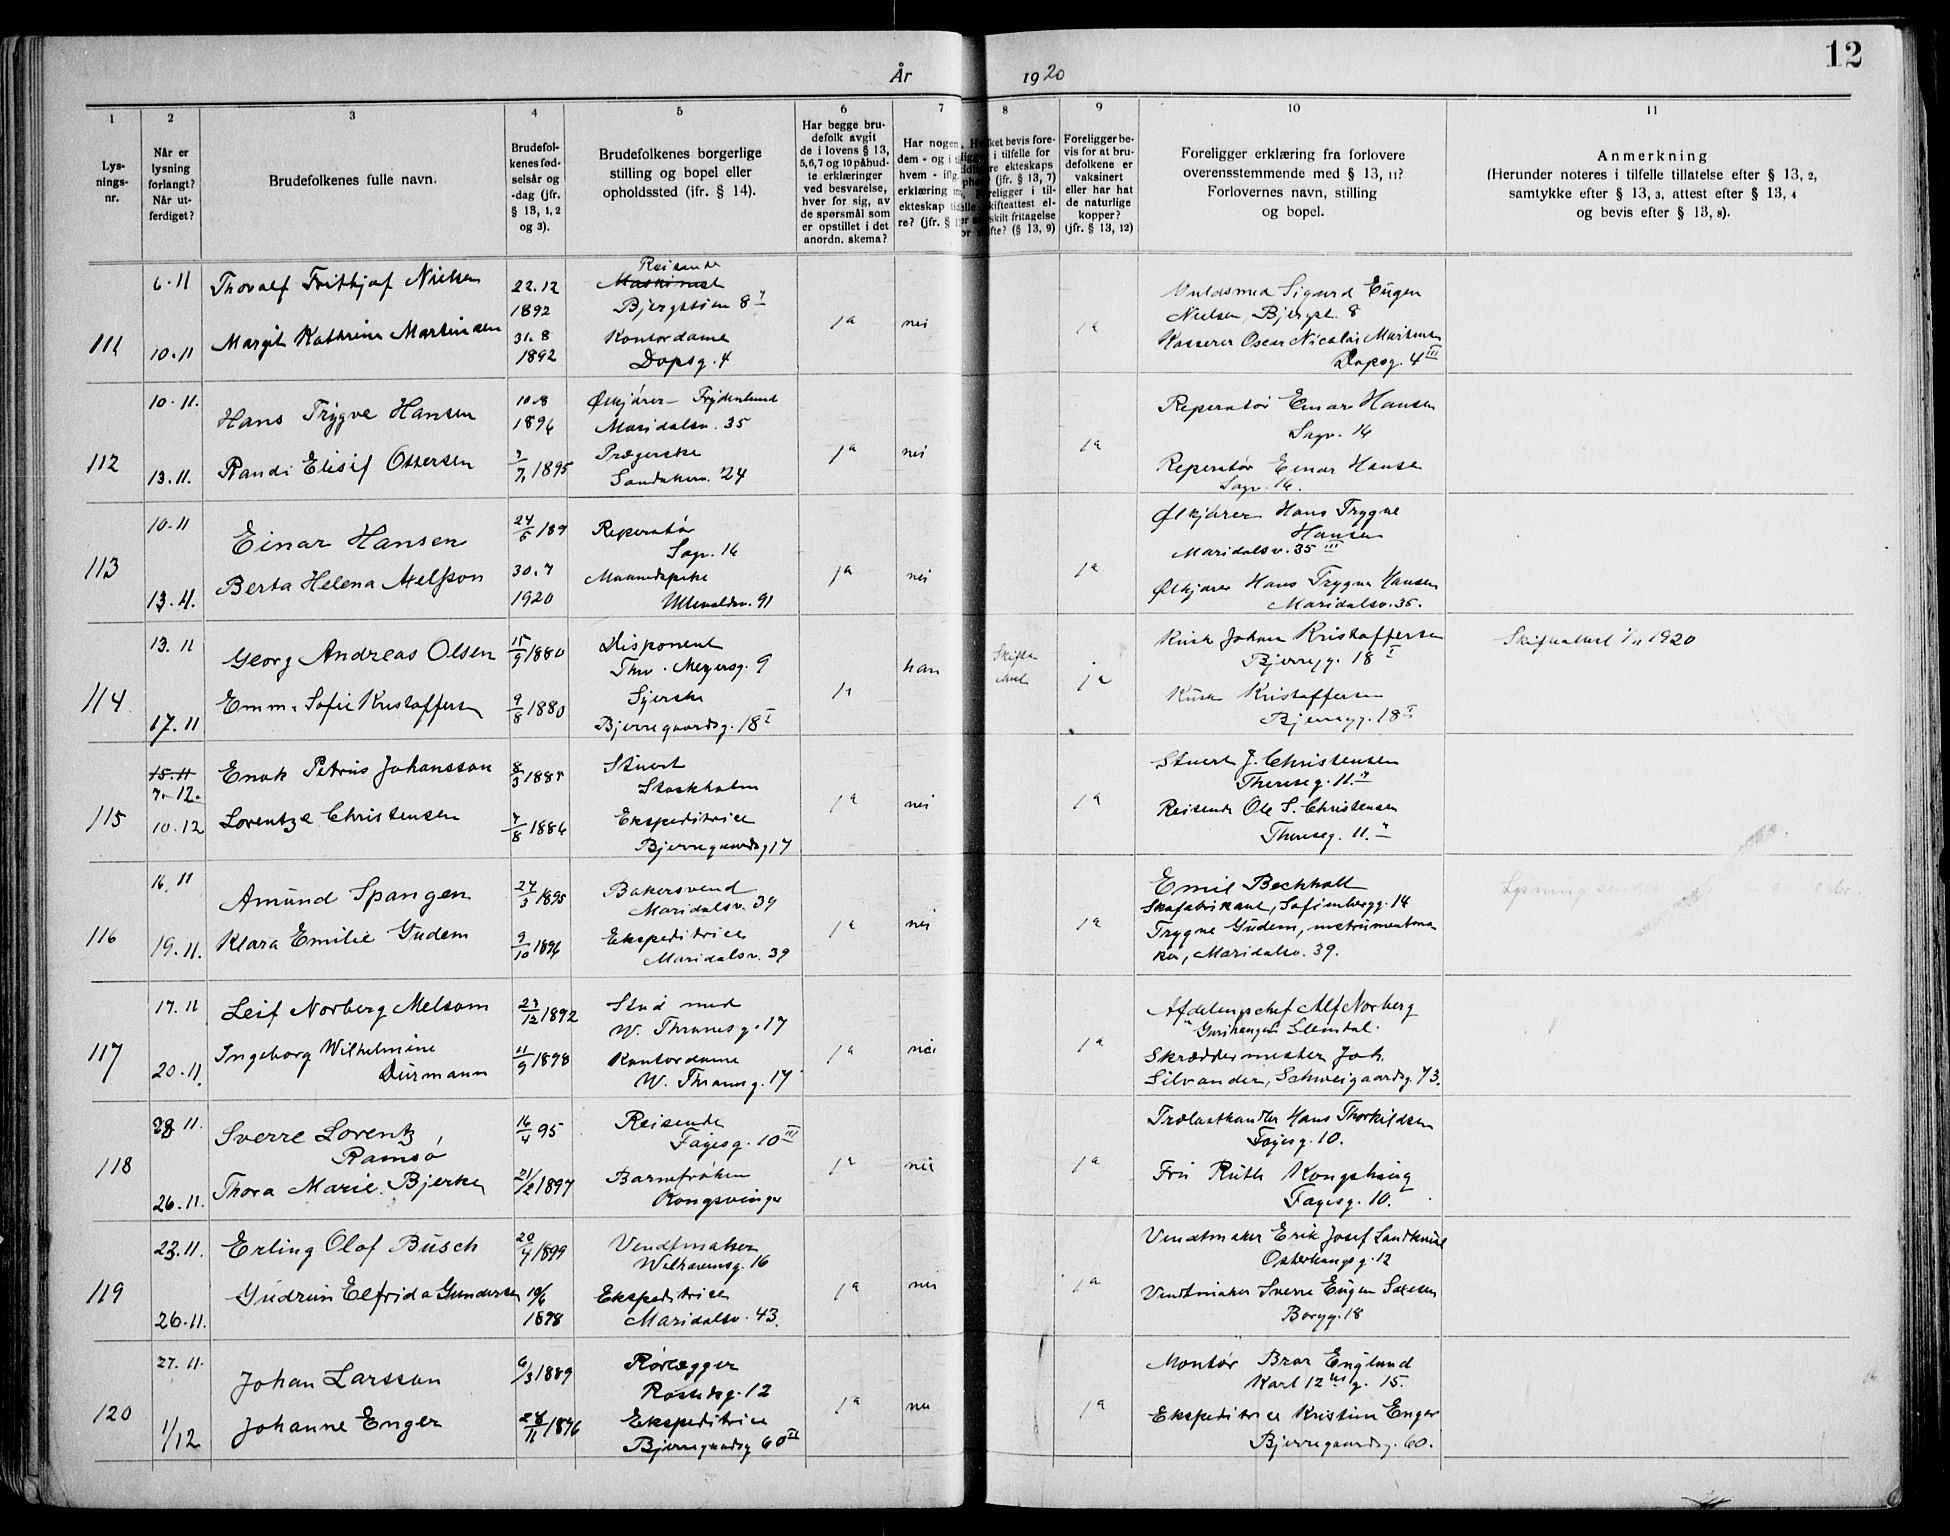 År 1920
12
1 2 3 4 5 6 7 8 9 10 11
Lys-
nings-
nr.
Når er
lysning
forlangt?
Når ut-
ferdiget?
Brudefolkenes fulle navn.
Brudefol-
kenes fød-
selsår og
-dag (jfr.
§ 13, 1, 2
og 3).
Brudefolkenes borgerlige
stilling og bopel eller
opholdssted (ifr. § 14).
Har begge bru-
defolk avgit
de i lovens § 13,
5,6,7 og 10 påbud-
te erklæringer
ved besvarelse,
hver for sig, av
de spørsmål som
er opstillet i det
anordn. skema?
Har nogen
dem - og i
hvem - ifl.
erklæring
ekteskap
re? (jfr. §
ket bevis fore-
i tilfelle for
re ekteskaps
(jfr. § 13, 7)
religger i til-
skifteattest el-
skilt fritagelse
fte? (§ 13, 9)
Foreligger be-
vis for at bru-
defolkene er
vaksinert
eller har hat
de naturlige
kopper?
(jfr. § 13, 12)
Foreligger erklæring fra forlovere
overensstemmende med § 13, 11?
Forlovernes navn, stilling
og bopel.
Anmerkning
(Herunder noteres i tilfelle tillatelse efter § 13, 2,
samtykke efter § 13, 3, attest efter § 13, 4
og bevis efter § 13, 8).
111
6.11
10.11
Thoralf Frithjof Nielsen
Margit Kathrine Martinsen
22.12
1892
31.8
1892
Reisende
Maskinist
Bjergstien 8
Kontordame
Dopsg. 4
ja nei ja
Sigurd Eugen
Nielsen, Bjergst. 8
Kasserer Oscar Nicolai Martinsen
Dopsg. 4 III
112
10.11.
13.11.
Hans Trygve Hansen
Randi Elisif Ottersen
10.8
1896
1895
Ølkjører - Frydenlund
Maridalsv. 35
Sandakerv. 24
ja nei ja
Reperatør Einar Hansen
Sagv. 16
Reperatør Einar Hansen
Sagv. 16.
113
10.11
13.11.
Einar Hansen
Berta Helena Axelsson
24/5 189
30.7
1920
Reperatør
Sagv. 16
Ullevoldsv. 91
ja nei ja
Ølkjører Hans Trygve
Hansen
Maridalsv. 35 III
Ølkjører Hans Trygve Hansen
Maridalsv. 35.
114
13.11
17.11
Georg Andreas Olsen
Emma Sofie Kristoffersen
15/9 1880
9/8 1880
Disponent
Thv. Meyersg. 9
Syerske
Bjerregaardsg. 18 I
ja han ja
Kusk Johan Kristoffersen
Bjerregg. 18 I
Kusk Kristoffersen
Bjerregg. 18 I
1920
115
15.11
7.12.
10.12
Enok Petrus Johansson
Lorentze Christensen
8/3 188
7/8 1886
Stuert
Stockholm
Ekspeditrice
Bjerregaardsg 17
ja nei ja
Stuert J. Christensen
Thereseg. 11.
Reisende Ole S. Christensen
Thereseg. 11.
116
16.11
19.11.
Amund Spangen
Klara Emilie Gudem
1895
9/10 1896
Bakersvend
Maridalsv. 39
Ekspeditrice
Maridalsv. 39
ja nei ja
Emil Bechholt
Skofabrikant, Sofienbergg. 14
Trygve Gudem, instrumentma-
ker, Maridalsv. 39.
117
17.11
20.11.
Leif Norberg Melsom
Ingeborg Wilhelmine
Durmann
27/12 1892
11/9 1898
Stud med
W. Thranesg. 17
Kontordame
W. Thranesg. 17
ja nei ja
Afdelingschef Alf Norberg
Slemdal.
Skræddermester Joh.
Silvander, Schweigaardsg. 73.
118
23.11.
26.11.
Sverre Lorentz
Ramsø
Thora Marie Bjerke
16/4 95
21/2 1897
Reisende
Fagesg. 10 III
Barnefrøken
Kongsvinger
ja nei ja
Trælasthandler Hans Thorkildsen
Fagesg. 10.
Fru Ruth Kongshaug
Fagesg. 10.
119
23.11.
26.11.
Erling Olof Busch
Gudrun Elfrida Gundersen
20/4 1899
19/6
1898
Vendtmaker
Welhavensg. 16
Ekspeditrice
Maridalsv. 43.
ja nei ja
Vendtmaker Erik Josef
Osterhaugsg. 12
Vendtmaker Sverre Eugen
Borgg. 18
120
27.11.
1/12
Johan Larsson
Johanne Enger
6/3 1889
28/11 1896
Rørlægger
Rostedsg. 12
Ekspeditrice
Bjerregaardsg 60 II
ja nei ja
Montør Bror Englund
Karl 12tes g. 15.
Ekspeditrice Kristine Enger
Bjerregaardsg. 60.